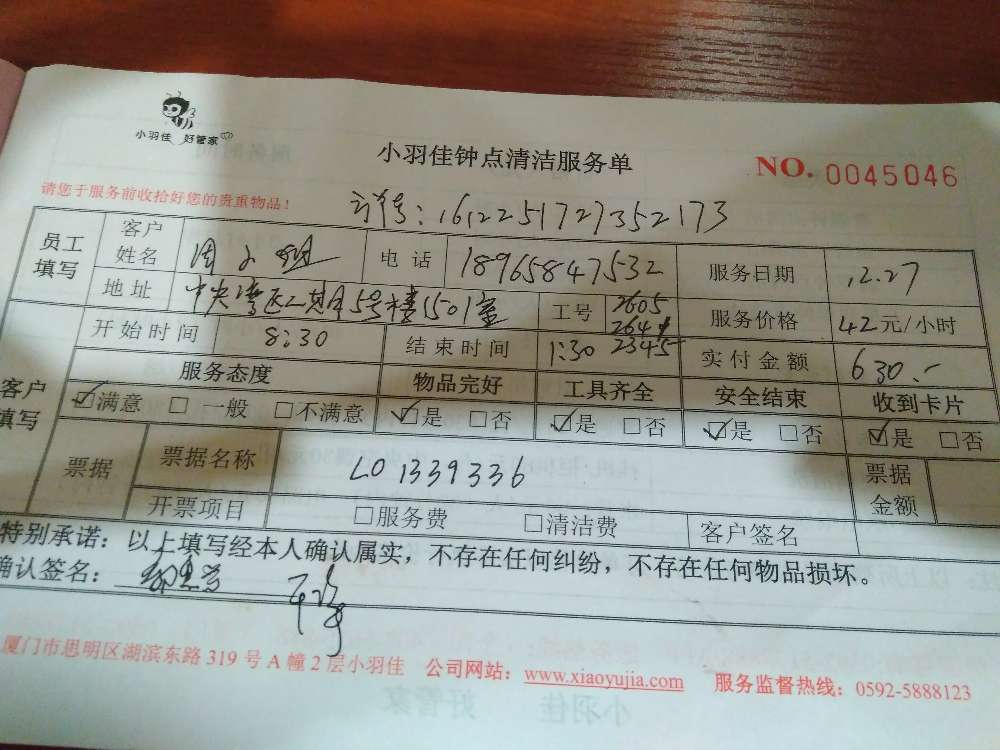 小羽佳 好管家
小羽佳钟点清洁服务单
NO. 0045046
请您于服务前收拾好您的贵重物品！
单号：1612251727352173
员工填写 客户姓名 周小 电话 18965847532 服务日期 12.27
地址 中央湾区二期5号楼1501室 工号 2605 264 2345 服务价格 42元/小时
开始时间 8:30 结束时间 1:30 实付金额 630.-
客户填写 服务态度 物品完好 工具齐全 安全结束 收到卡片
☑满意 □一般 □不满意 ☑是 □否 ☑是 □否 ☑是 □否 ☑是 □否
票据 票据名称 LO1339336 票据金额
开票项目 □服务费 □清洁费 客户签名
特别承诺：以上填写经本人确认属实，不存在任何纠纷，不存在任何物品损坏。
确认签名：
厦门市思明区湖滨东路 319 号 A 幢 2 层小羽佳 公司网站：www.xiaoyujia.com 服务监督热线：0592-5888123